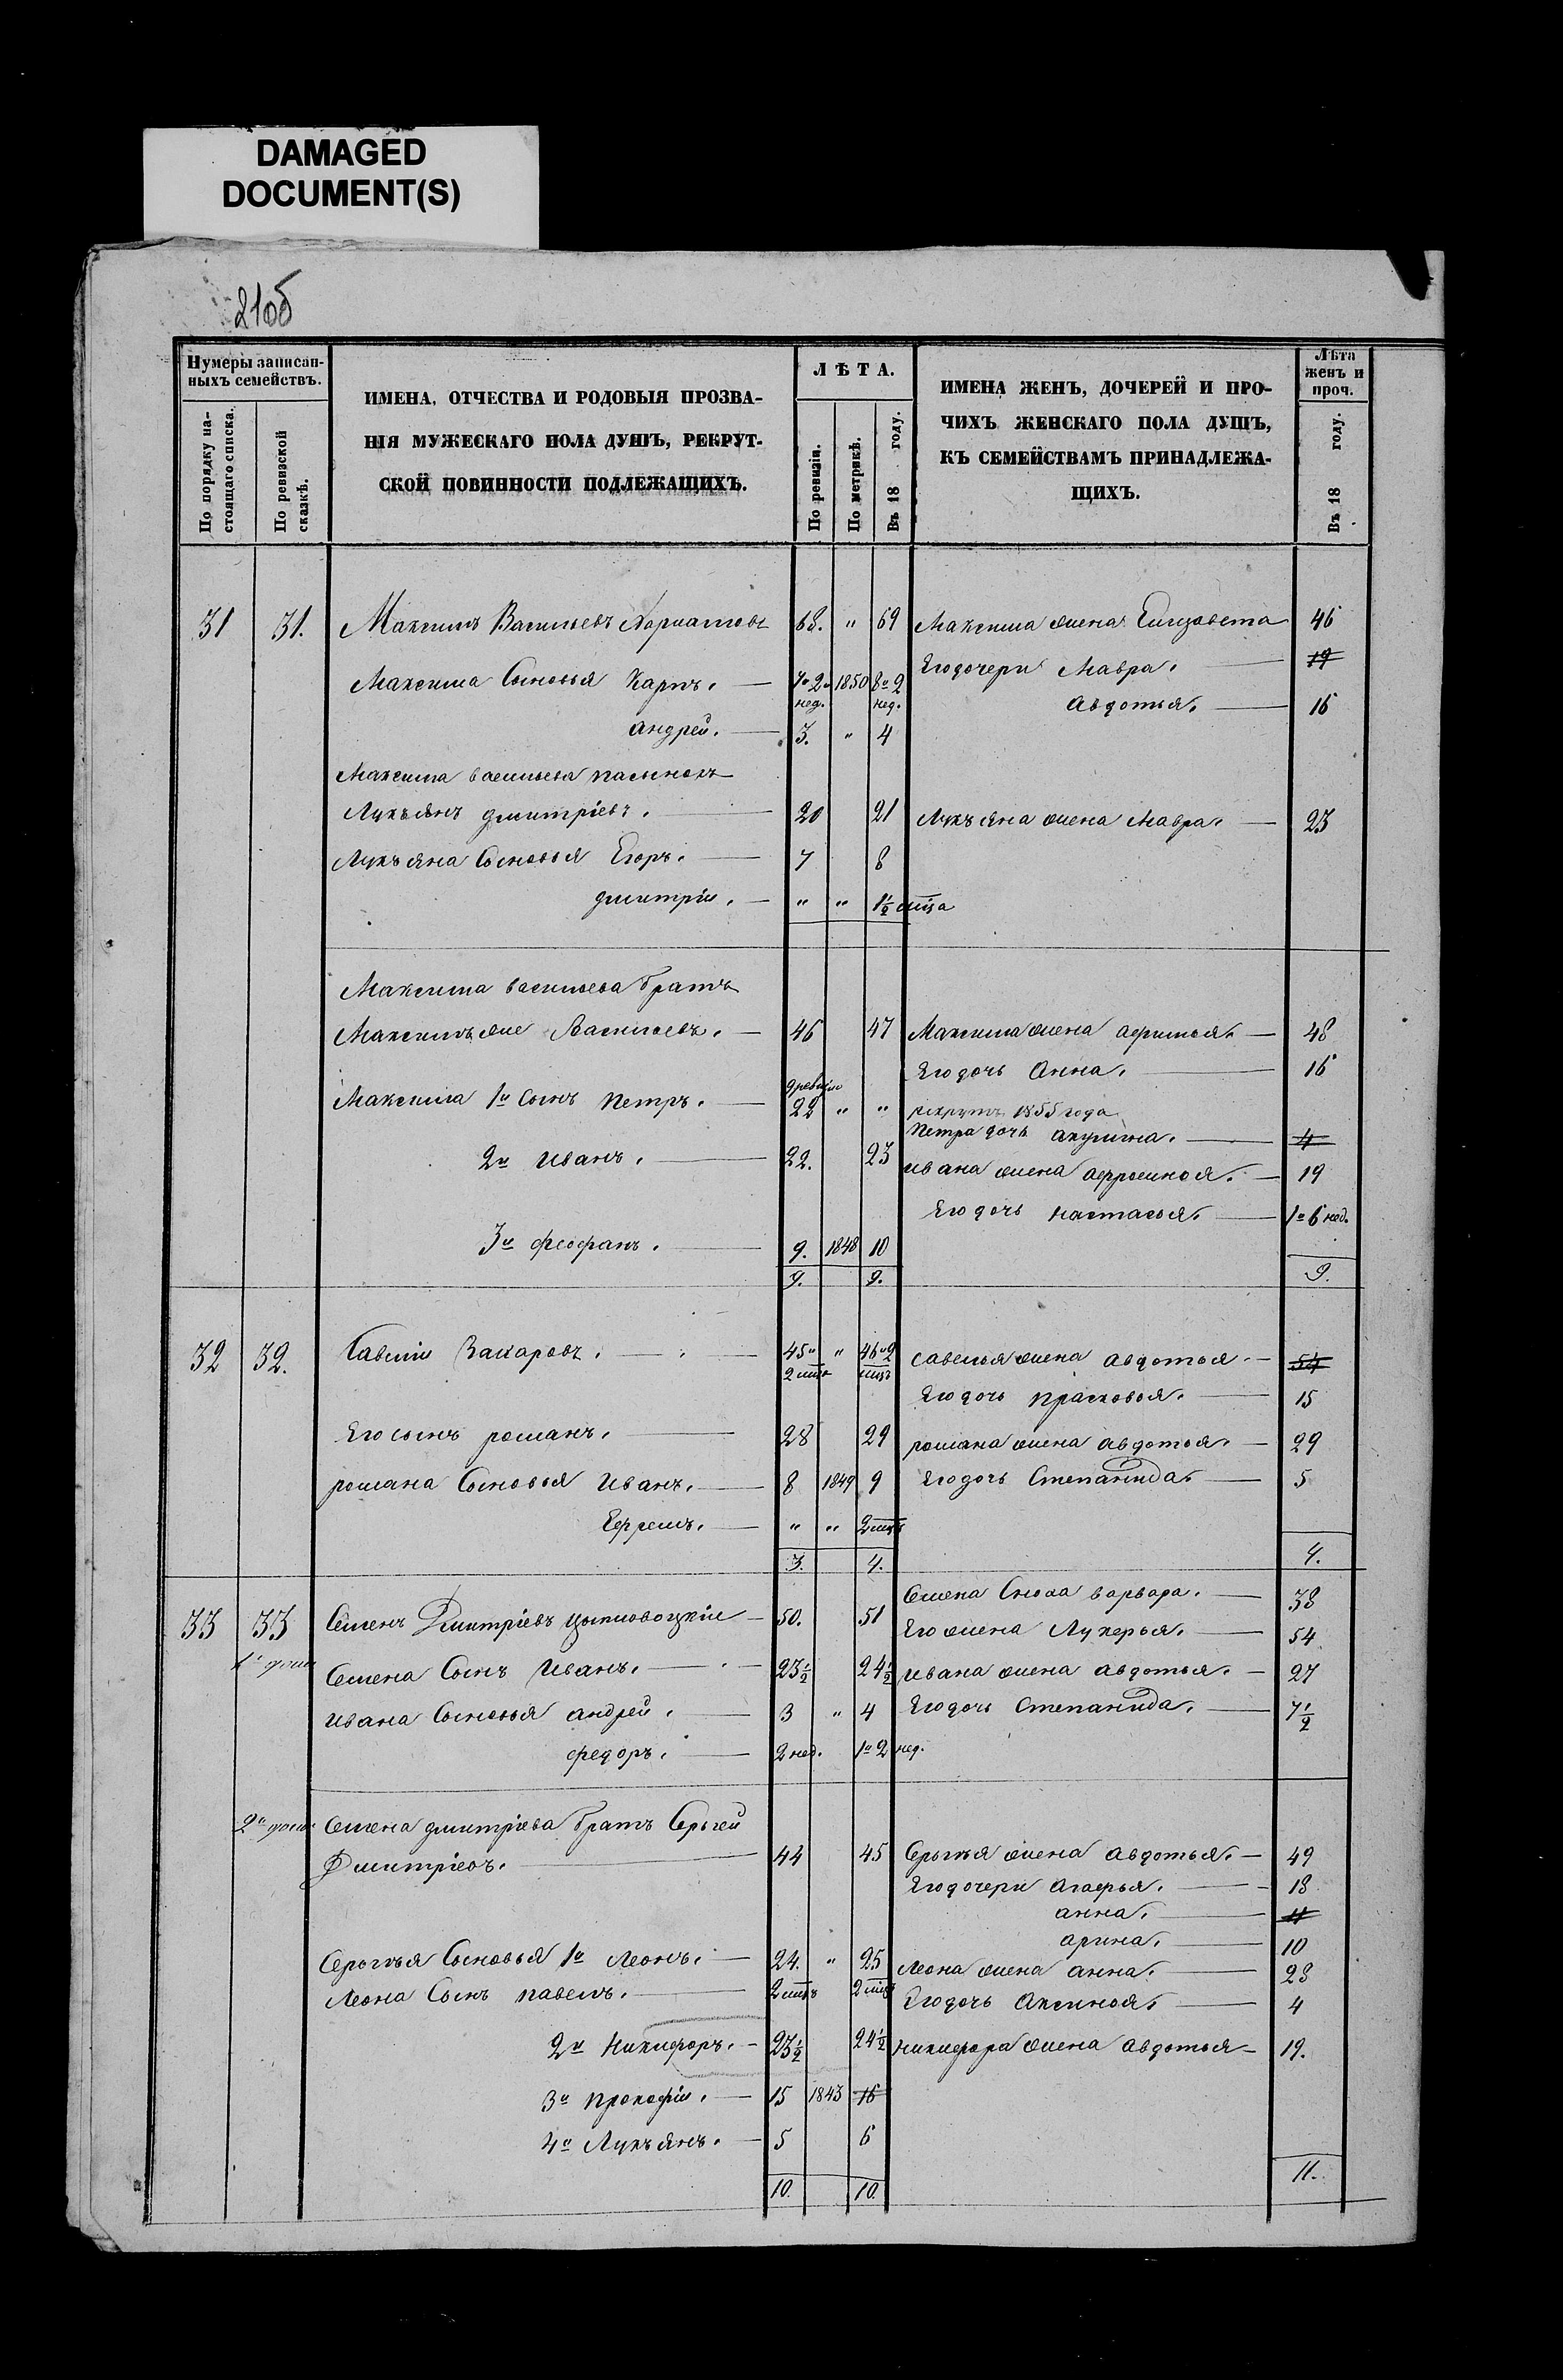 DAMAGED
DOCUMENT(S)
210б
Нумеры записан-
ныхъ семействъ.
По порядку на-
стоящаго списка.
По ревизской
сказкѣ.
ИМЕНА, ОТЧЕСТВА И РОДОВЫЯ ПРОЗВА-
НІЯ МУЖЕСКАГО ПОЛА ДУШЪ, РЕКРУТ-
СКОЙ ПОВИННОСТИ ПОДЛЕЖАЩИХЪ.
ЛѢТА.
По ревизіи.
По метрикѣ.
Въ 18 году.
ИМЕНА ЖЕНЪ, ДОЧЕРЕЙ И ПРО-
ЧИХЪ ЖЕНСКАГО ПОЛА ДУШЪ,
КЪ СЕМЕЙСТВАМЪ ПРИНАДЛЕЖА-
ЩИХЪ.
Лѣта
женъ и
проч.
Въ 18 году.
31 31. Максимъ Васильевъ 68. " 69 Максима жена Елизавета 46
Его дочери Мавра. 19
Максима Сыновья Карпъ. 7 и 2 нед. 1850 8 и 2 нед.
Авдотья. 16
андрей. 3. " 4
Максима васильева пасынокъ
Лукъянъ дмитріевъ. 20 21 Лукъяна жена Мавра. 23
Лукъяна Сыновья Егоръ. 7 8
дмитрій. " " 1½ мца
Максима васильева братъ
Максимъ же Васильевъ. 46 47 Максима жена афимья. 48
Его дочь Анна. 16
Максима 1й Сынъ петръ. 22 " " рекрутъ 1855 года
Петра дочь акулина. 4
2й Иванъ. 22. 23 ивана жена афросинья. 19
Его дочь настасья. 1 и 6 нед.
3й феофанъ. 9. 1848 10
9. 9. 9.
32 32. Савелій Захаровъ. 45 и 2 мца " 46 и 2 мца савелья жена авдотья. 54
Его дочь прасковья. 15
Его сынъ романъ. 28 29 романа жена авдотья. 29
романа Сыновья Иванъ. 8 1849 9 Его дочь Степанида 5
Ефремъ. " " 2 мца
3. 4. 4.
Семена Сноха варвара. 38
33 33 Семенъ Дмитріевъ 50. 51
Его жена Лукерья. 54
Семена Сынъ Иванъ. 23½ 24½ ивана жена авдотья. 27
ивана Сыновья андрей. 3 " 4 Его дочь Степанида. 7½
федоръ. 2 нед. 1 и 2 нед.
Семена дмитріева братъ Сергей
Дмитріевъ. 44 45 Сергѣя жена авдотья. 49
Его дочери агафья. 18
анна. 11
арина. 10
Сергѣя Сыновья 1й Леонъ. 24. " 25 Леона жена анна. 28
Леона Сынъ павелъ. 2 мца 2 мца Его дочь Аксинья 4
2й Никифоръ. 23½ 24½ никифора жена авдотья 19.
3й прокофій. 15 1843 16
4й Лукъянъ. 5 6
10. 10. 11.